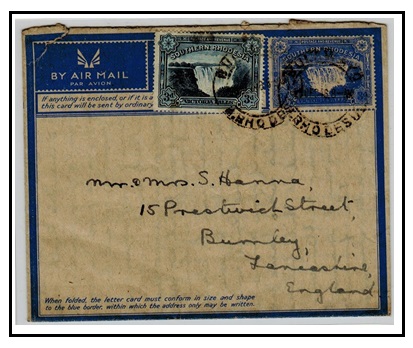 BY AIR MAIL
PAR AVION
If anything is enclosed, or if it is a
this card will be sent by ordinary
SOUTHERN RHODESIA
VICTORIA FALLS
3d 3d
SOUTHERN RHODESIA
Mr. & Mrs. S. Hanna,
15 Prestwich Street,
Burnley,
Lancashire,
England
When folded, the letter card must conform in size and shape
to the blue border, within which the address only may be written.